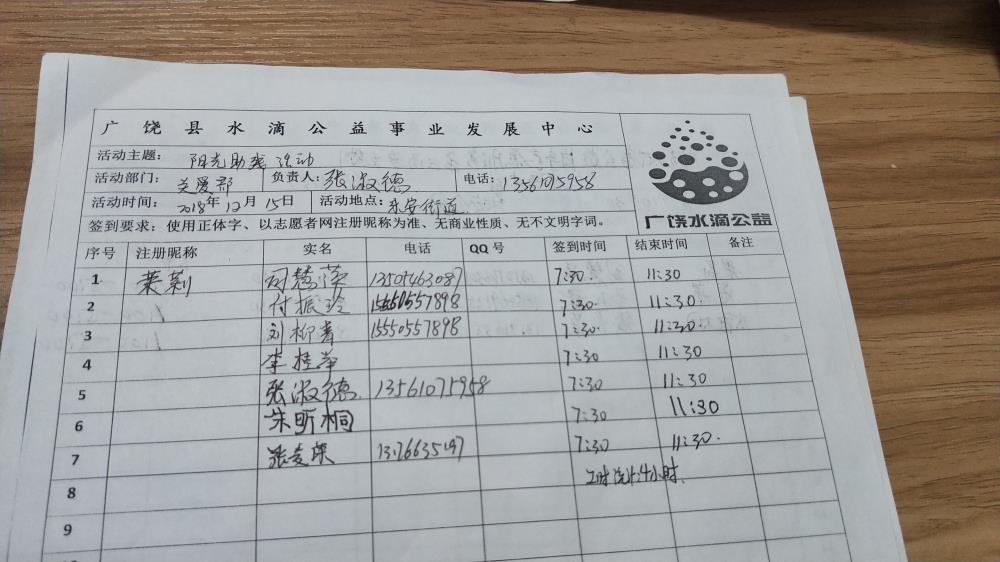 广饶县水滴公益事业发展中心
活动主题: 阳光助残活动
活动部门: 关爱部 负责人: 张淑德 电话:
活动时间: 2018年12月15日 活动地点: 永安街道
签到要求: 使用正体字、以志愿者网注册昵称为准、无商业性质、无不文明字词。
广饶水滴公益
序号 注册昵称 实名 电话 QQ号 签到时间 结束时间 备注
1 茉莉 13505463087 7:30 11:30
2 付振玲 15550557898 7:30 11:30
3 刘柳青 15550557898 7:30 11:30
4 李桂萍 7:30 11:30
5 张淑德 13561075958 7:30 11:30
6 朱昕桐 7:30 11:30
7 7:30 11:30
8 4小时
9